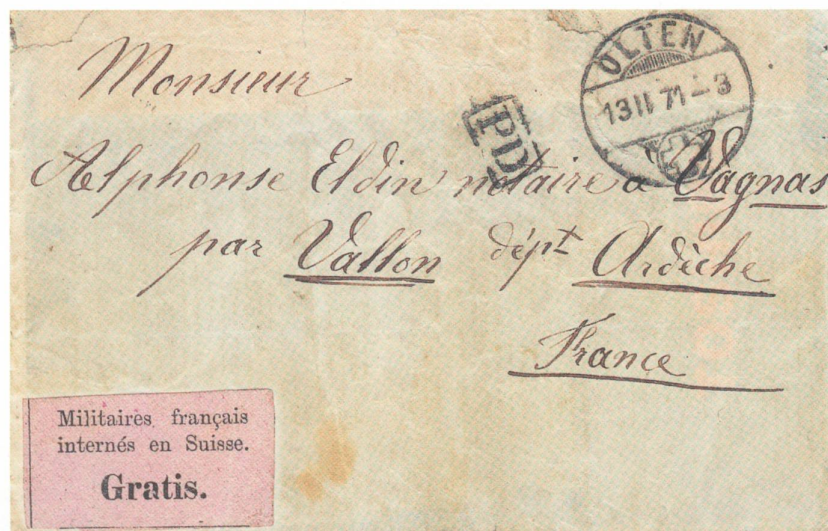 Monsieur
OLTEN
13 II 71 – 3
PD
Alphonse Eldin notaire à Vagnas
par Vallon dépt Ardèche
France
Militaires français
internés en Suisse.
Gratis.